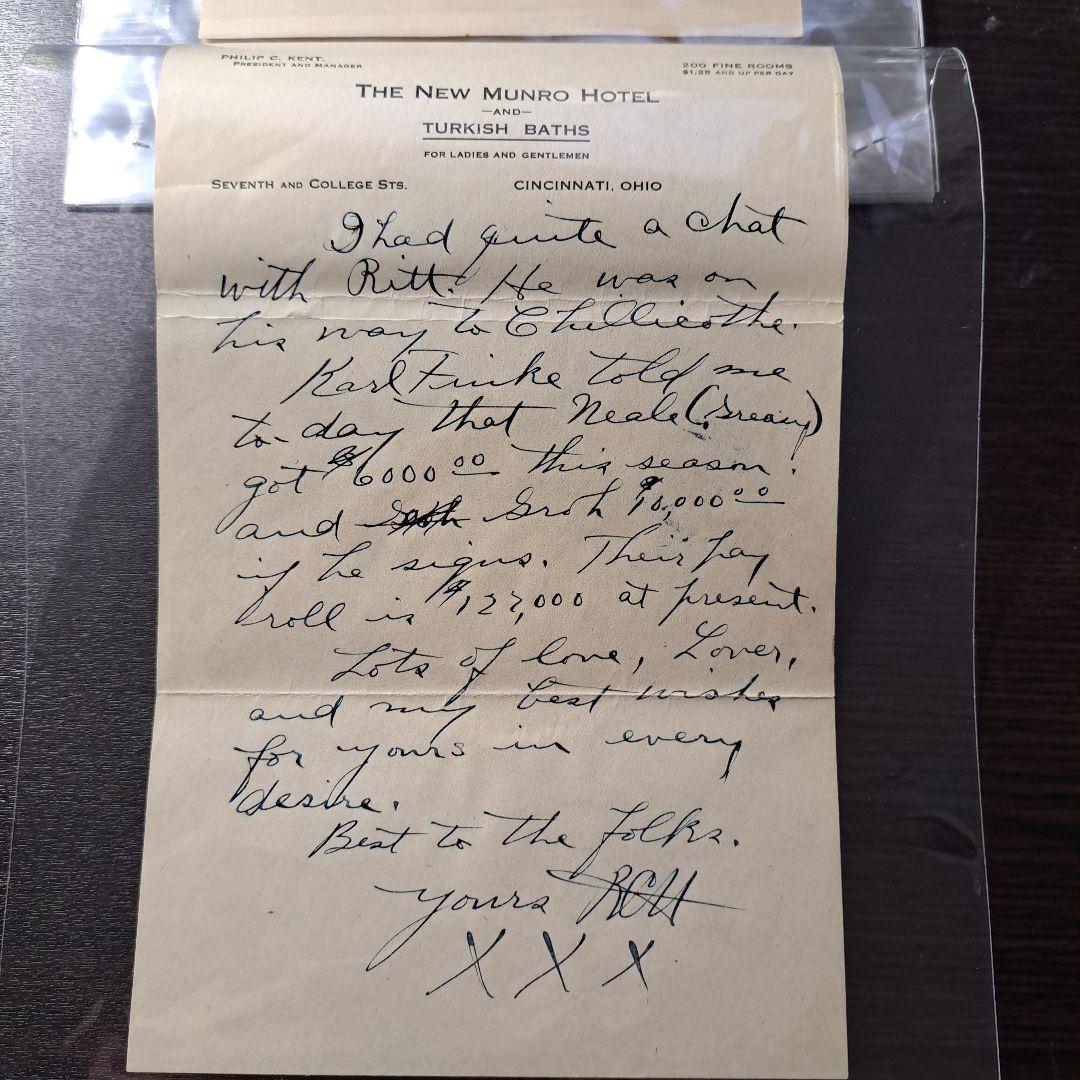 PHILIP C. KENT,
PRESIDENT AND MANAGER
200 FINE ROOMS
$1.25 AND UP PER DAY
THE NEW MUNRO HOTEL
—AND—
TURKISH BATHS
FOR LADIES AND GENTLEMEN
SEVENTH AND COLLEGE STS.
CINCINNATI, OHIO
I had quite a chat
with Ritt. He was on
his way to Chillicothe.
Karl Finke told me
to-day that Neale (Greasy)
got $6000.00 this season.
and Groh $10,000.00
if he signs. Their pay
roll is $127,000 at present.
Lots of love, Lover,
and my best wishes
for yours in every
desire.
Best to the folks.
Yours RCH
X X X